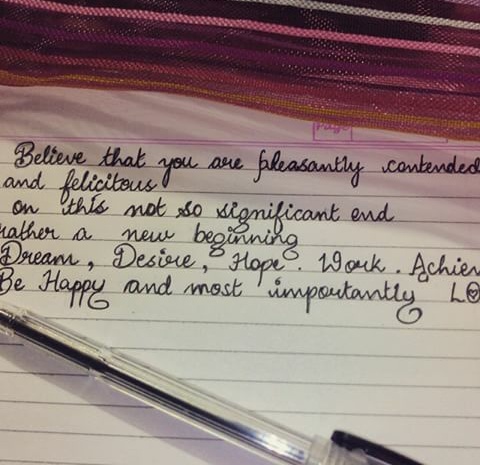 Page
Believe that you are pleasantly contended
and felicitous
on this not so significant end
rather a new beginning
Dream, Desire, Hope. Work. Achiev
Be Happy and most importantly LO